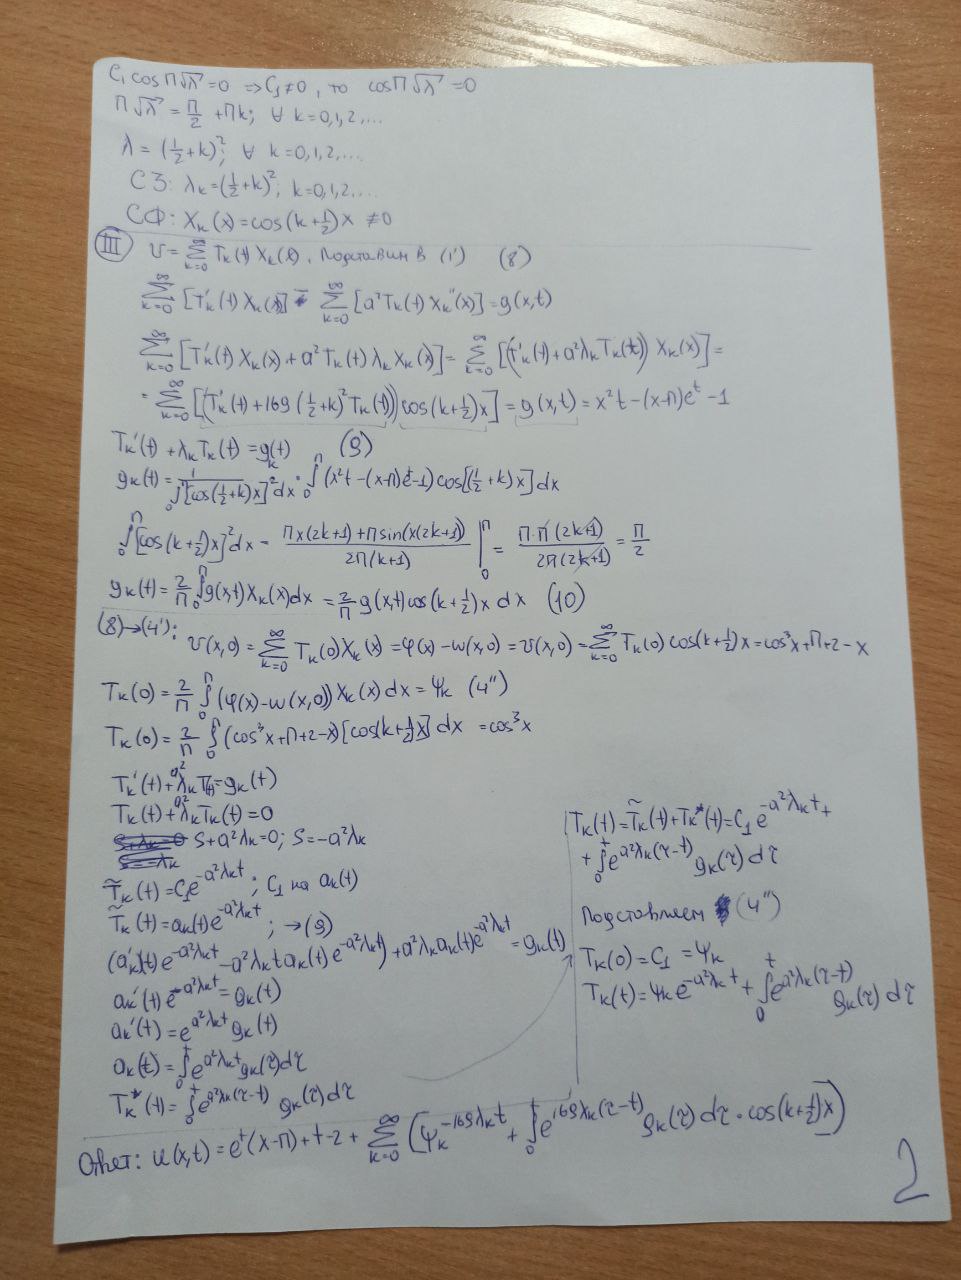 C₁ cos π√λ = 0 ⇒ C₁ ≠ 0, то cos π√λ = 0
π√λ = π/2 + πk; ∀ k = 0,1,2,...
λ = (1/2 + k)²; ∀ k = 0,1,2,...
СЗ: λₖ = (1/2 + k)²; k = 0,1,2...
СФ: Xₖ(x) = cos(k + 1/2)x ≠ 0
III v = ∑_{k=0}^{∞} Tₖ(t) Xₖ(x). Подставим в (1') (8)
∑_{k=0}^{∞} [T'ₖ(t) Xₖ(x)] - ∑_{k=0}^{∞} [a² Tₖ(t) Xₖ''(x)] = g(x,t)
∑_{k=0}^{∞} [T'ₖ(t) Xₖ(x) + a² Tₖ(t) λₖ Xₖ(x)] = ∑_{k=0}^{∞} [(T'ₖ(t) + a² λₖ Tₖ(t)) Xₖ(x)] =
= ∑_{k=0}^{∞} [(T'ₖ(t) + 169 (1/2 + k)² Tₖ(t)) cos(k + 1/2)x] = g(x,t) = x²t - (x-π)eᵗ - 1
Tₖ'(t) + λₖ Tₖ(t) = gₖ(t) (9)
gₖ(t) = 1/∫₀^π [cos(1/2 + k)x]² dx · ∫₀^π (x²t - (x-π)eᵗ - 1) cos[(1/2 + k)x] dx
∫₀^π [cos(k + 1/2)x]² dx = (πx(2k+1) + π sin(x(2k+1)))/(2π(k+1)) |₀^π = (π·π(2k+1))/(2π(2k+1)) = π/2
gₖ(t) = 2/π ∫₀^π g(x,t) Xₖ(x) dx = 2/π g(x,t) cos(k + 1/2)x dx (10)
(8)→(4'): v(x,0) = ∑_{k=0}^{∞} Tₖ(0) Xₖ(x) = φ(x) - w(x,0) = v(x,0) = ∑_{k=0}^{∞} Tₖ(0) cos(k + 1/2)x = cos³x + π + 2 - x
Tₖ(0) = 2/π ∫₀^π (φ(x) - w(x,0)) Xₖ(x) dx = ψₖ (4'')
Tₖ(0) = 2/π ∫₀^π (cos³x + π + 2 - x) [cos(k + 1/2)x] dx = cos³x
Tₖ'(t) + a²λₖ T(t) = gₖ(t)
Tₖ(t) + a²λₖ Tₖ(t) = 0
S + λₖ = 0 S + a²λₖ = 0; S = -a²λₖ
S = -λₖ
T̃ₖ(t) = C₁e^{-a²λₖt}; C₁ на aₖ(t)
T̃ₖ(t) = aₖ(t)e^{-a²λₖt}; → (9)
(a'ₖ(t) e^{-a²λₖt} - a²λₖt aₖ(t) e^{-a²λₖt}) + a²λₖ aₖ(t) e^{-a²λₖt} = gₖ(t)
aₖ'(t) e^{-a²λₖt} = gₖ(t)
aₖ'(t) = e^{a²λₖt} gₖ(t)
aₖ(t) = ∫₀ᵗ e^{a²λₖt} gₖ(τ) dτ
Tₖ*(t) = ∫₀ᵗ e^{a²λₖ(τ-t)} gₖ(τ) dτ
Tₖ(t) = T̃ₖ(t) + Tₖ*(t) = C₁ e^{-a²λₖt} +
+ ∫₀ᵗ e^{a²λₖ(τ-t)} gₖ(τ) dτ
Подставляем (4'')
Tₖ(0) = C₁ = ψₖ
Tₖ(t) = ψₖ e^{-a²λₖt} + ∫₀ᵗ e^{a²λₖ(τ-t)} gₖ(τ) dτ
Ответ: u(x,t) = eᵗ(x-π) + t - 2 + ∑_{k=0}^{∞} (ψₖ^{-169λₖt} + ∫₀ᵗ e^{169λₖ(τ-t)} gₖ(τ) dτ · cos(k + 1/2)x)
2